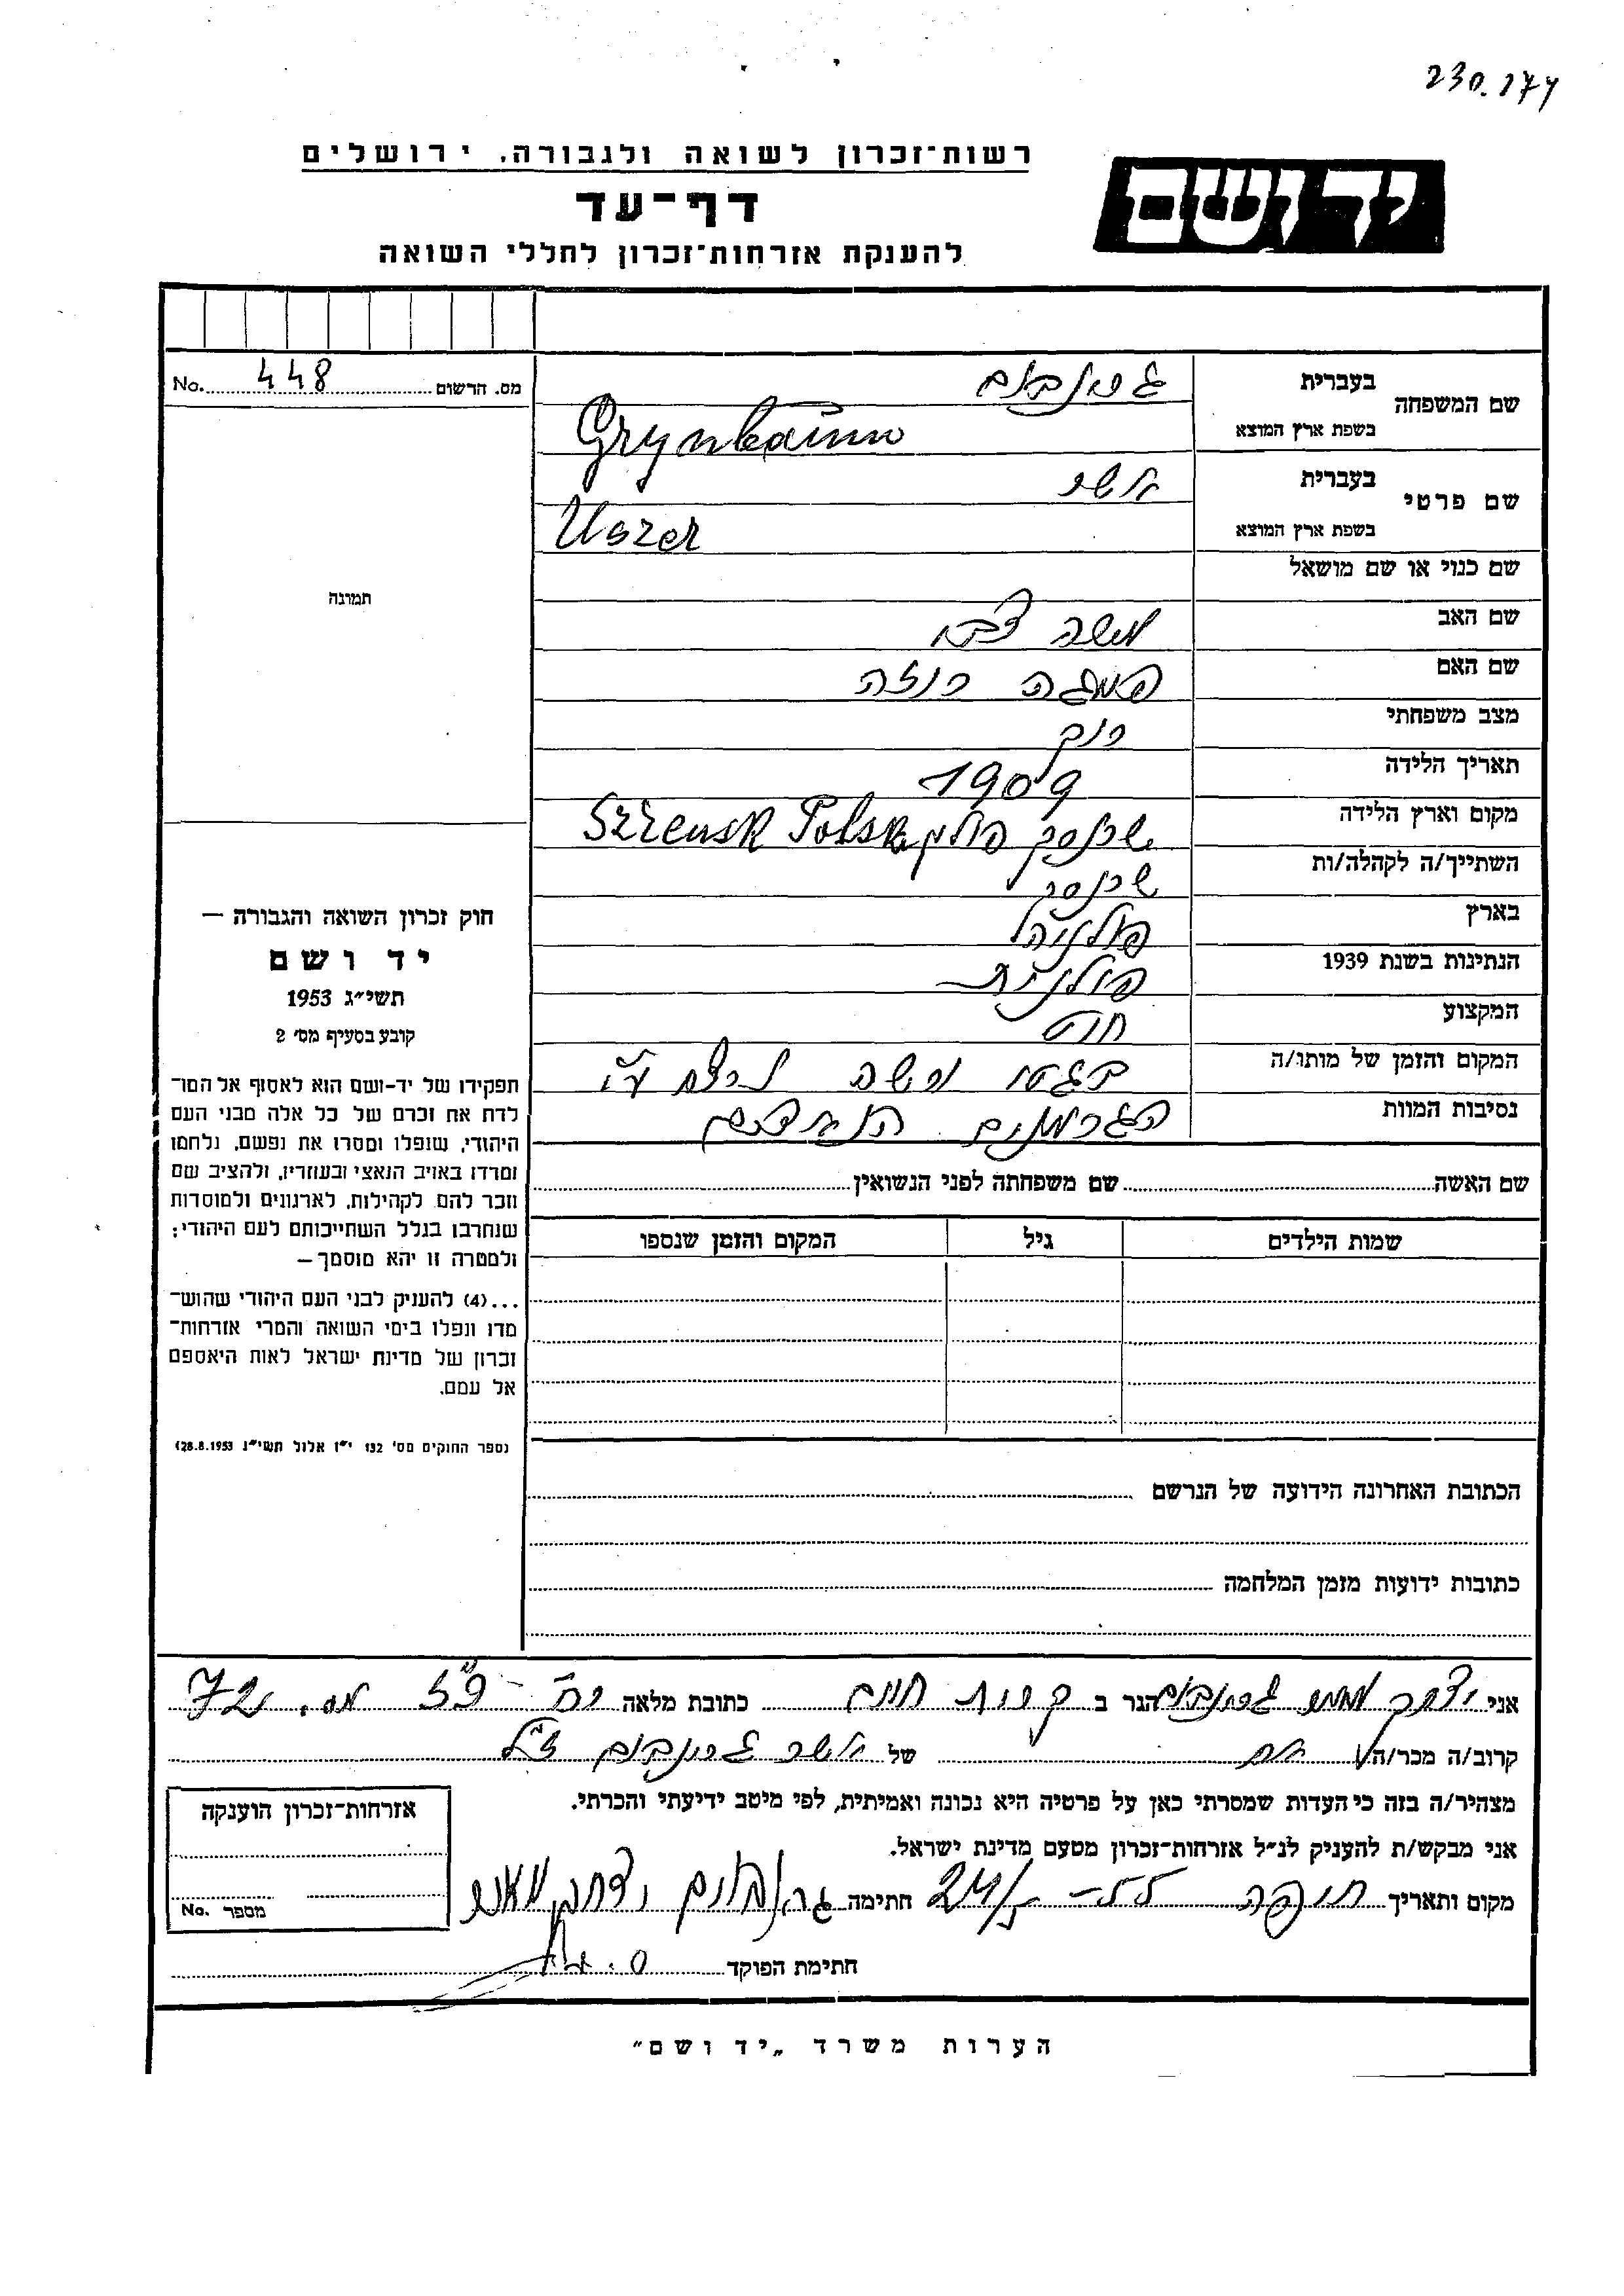 230.174
רשות־זכרון לשואה ולגבורה, ירושלים
יד ושם
דף־עד
להענקת אזרחות־זכרון לחללי השואה
No. 448 מס. הרשום
תמונה
חוק זכרון השואה והגבורה —
יד ושם
תשי״ג 1953
קובע בסעיף מס׳ 2
תפקידו של יד-ושם הוא לאסוף אל המו־
לדת את זכרם של כל אלה מבני העם
היהודי, שנפלו ומסרו את נפשם, נלחמו
ומרדו באויב הנאצי ובעוזריו, ולהציב שם
וזכר להם לקהילות, לארגונים ולמוסדות
שנחרבו בגלל השתייכותם לעם היהודי;
ולמטרה זו יהא מוסמך —
...(4) להעניק לבני העם היהודי שהוש־
מדו ונפלו בימי השואה והמרי אזרחות־
זכרון של מדינת ישראל לאות היאספם
אל עמם.
(ספר החוקים מס׳ 132 י״ז אלול תשי״ג 28.8.1953)
שם המשפחה בעברית גרינבוים
בשפת ארץ המוצא Grynbaum
שם פרטי בעברית אשר
בשפת ארץ המוצא Uszer
שם כנוי או שם מושאל
שם האב משה צבי
שם האם
מצב משפחתי רווק
תאריך הלידה 1909
מקום וארץ הלידה שרנסק פולין Szrensk Polska
השתייך/ה לקהלה/ות שרנסק
בארץ פולניה
הנתינות בשנת 1939 פולנית
המקצוע חייט
המקום והזמן של מותו/ה בגטו ורשה נרצח ע״י
נסיבות המוות הגרמנים הנאצים
שם האשה שם משפחתה לפני הנשואין
שמות הילדים גיל המקום והזמן שנספו
הכתובת האחרונה הידועה של הנרשם
כתובות ידועות מזמן המלחמה
אני יצחק גרינבוים הגר ב קרית חיים כתובת מלאה מס. 72
קרוב/ה מכר/ה אח של אשר גרינבוים ז״ל
מצהיר/ה בזה כי העדות שמסרתי כאן על פרטיה היא נכונה ואמיתית, לפי מיטב ידיעתי והכרתי.
אני מבקש/ת להעניק לנ״ל אזרחות־זכרון מטעם מדינת ישראל.
מקום ותאריך חיפה חתימה גרינבוים יצחק
חתימת הפוקד
אזרחות־זכרון הוענקה
מספר No.
הערות משרד „יד ושם״